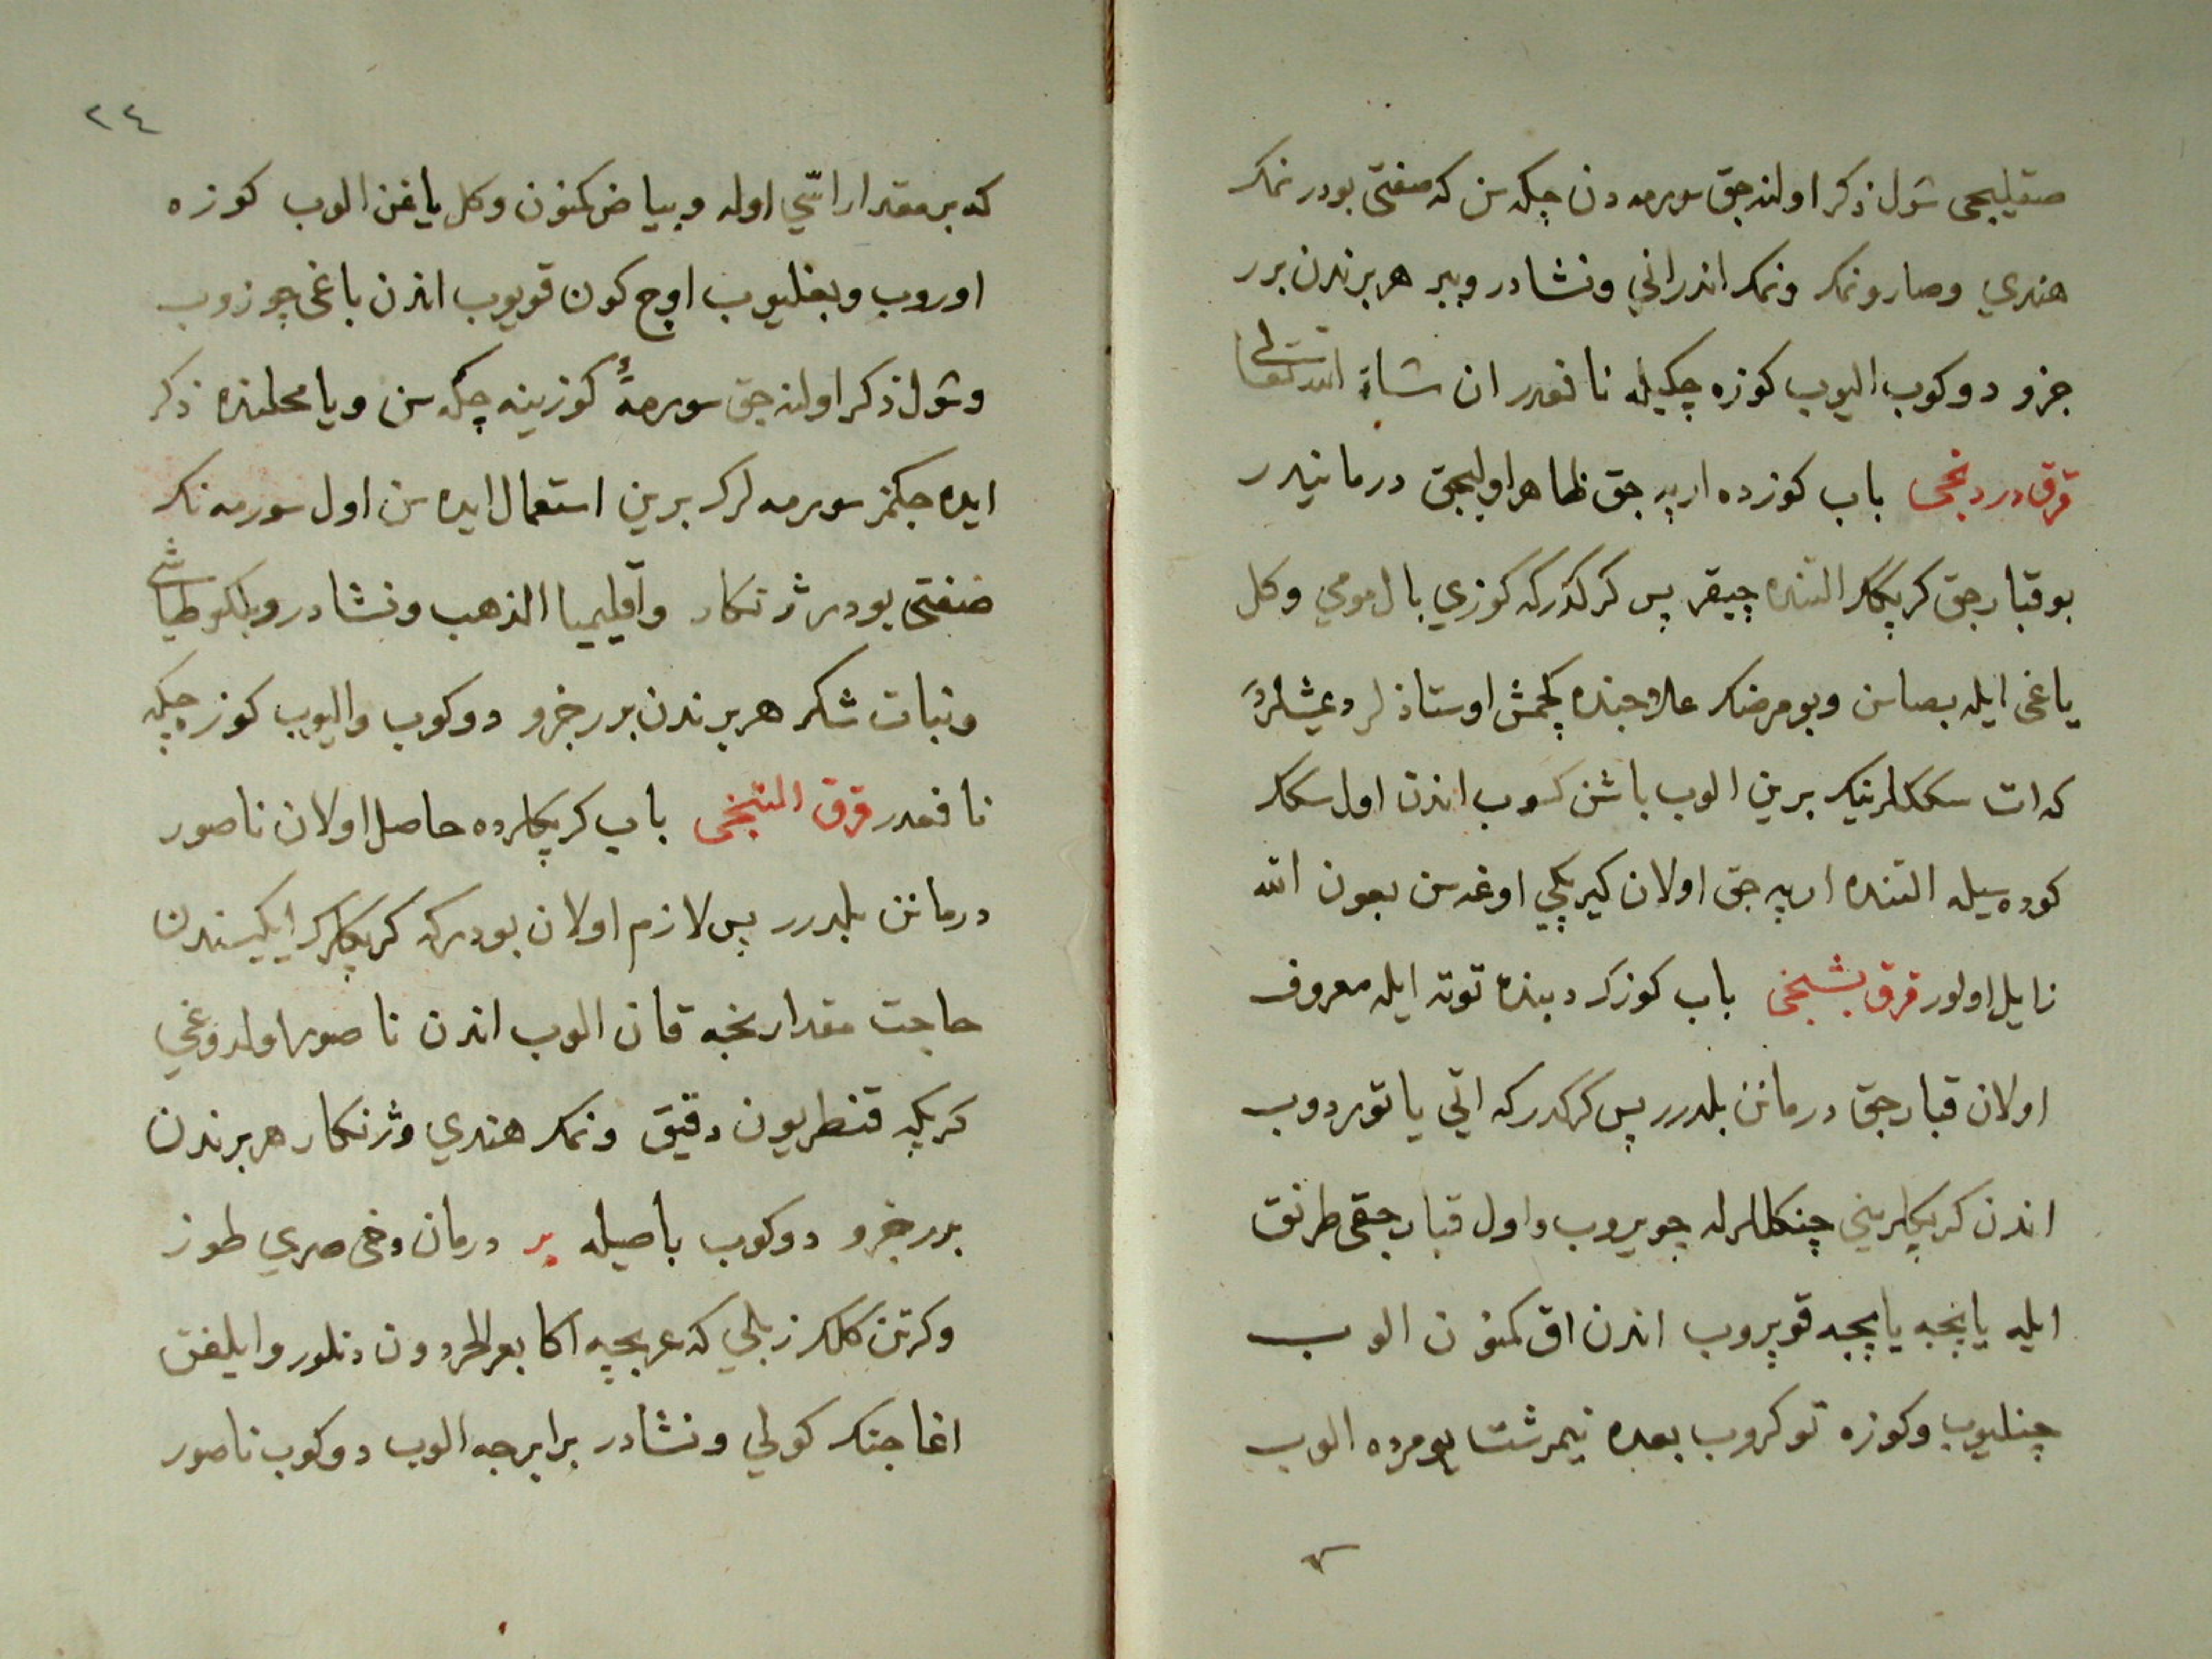 صقيلیجی شول ذكر اولنه جق سورمه دن چكه سن كه صفتی بودر نمك
هندي وصارو نمك ونمك اندراني ونشادر وببر هر برندن برر
جزو دوكوب اليوب كوزه چكيله نافعدر ان شاء الله تعالى
قرق دردنجی باب كوزده ارپه جق ظاهر اوليجق درمانیدر
بو قبارجق كرپكلر التنده چيقر پس كركدركه كوزي بال مومي وكل
ياغی ايله بصاسن وبو مرضك علاجنده كچمش اوستاذلر دیمشلردر
كه ات سككلرينك برين الوب باشن كسوب اندن اول سكك
كوده سيله التنده ارپه جق اولان كيرپكي اوغه سن بعون الله
زايل اولور قرق بشنجی باب كوزك دبنده توته ايله معروف
اولان قبارجق درمانن بلدرر پس كركدركه اتي ياتوردوب
اندن كرپكلريني چنكللرله چويروب واول قبارجقی طرنق
ايله ياپنجه ياپنجه قوپروب اندن اق كمنون الوب
چنليوب وكوزه توكروب بعده نيمرشت يومرده الوب
٢٤
كه بر مقدار اسّي اوله وبياض كمنون وكل ياغن الوب كوزه
اوروب وبغليوب اوچ كون قويوب اندن باغی چوزوب
وشول ذكر اولنه جق سورمهٔ كوزينه چكه سن ويا محلنده ذكر
ايده جكمز سورمه لرك برين استعمال ايده سن اول سورمه نك
صفتی بودر ژنكار واقليميا الذهب ونشادر وبلكو طاشی
ونبات شكر هر برندن برر جزو دوكوب واليوب كوزه چكه
نافعدر قرق التنجی باب كرپكلرده حاصل اولان ناصور
درمانن بلدرر پس لازم اولان بودركه كرپكلرك ايكيسندن
حاجت مقدارنجه قان الوب اندن ناصور اولدوغی
كرپكه قنطريون دقيق ونمك هندي وژنكار هر برندن
برر جزو دوكوب باصيله بر درمان دخی صري طوز
وكرتن كلك زبلي كه عربجه اكا بعر الحردون دنلور وايلغن
اغاجنك كولي ونشادر برابرجه الوب دوكوب ناصور